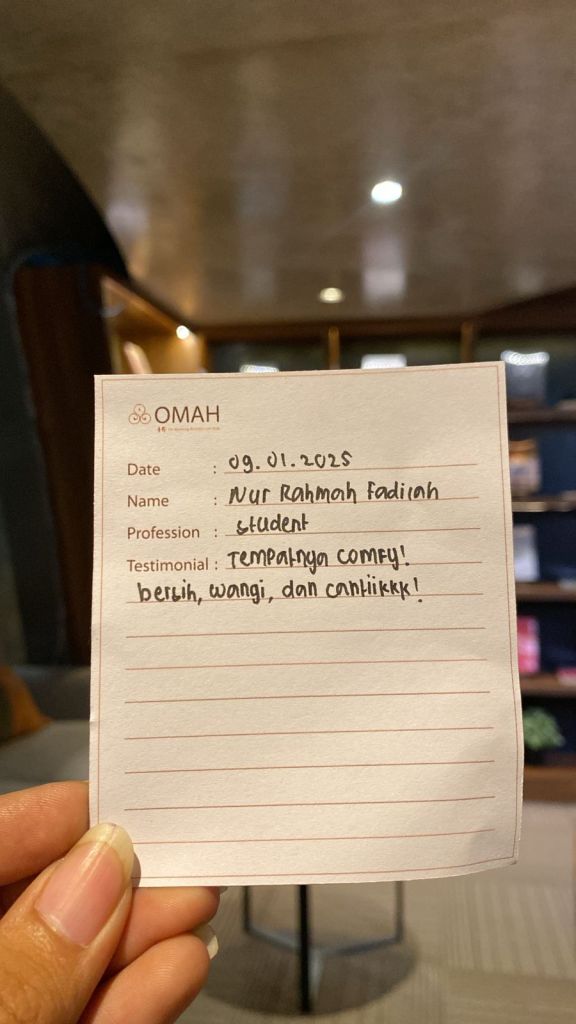 OMAH
Date : 09.01.2025
Name : Nur Rahmah Fadilah
Profession : student
Testimonial : Tempatnya comfy!
bersih, wangi, dan cantiikkk!